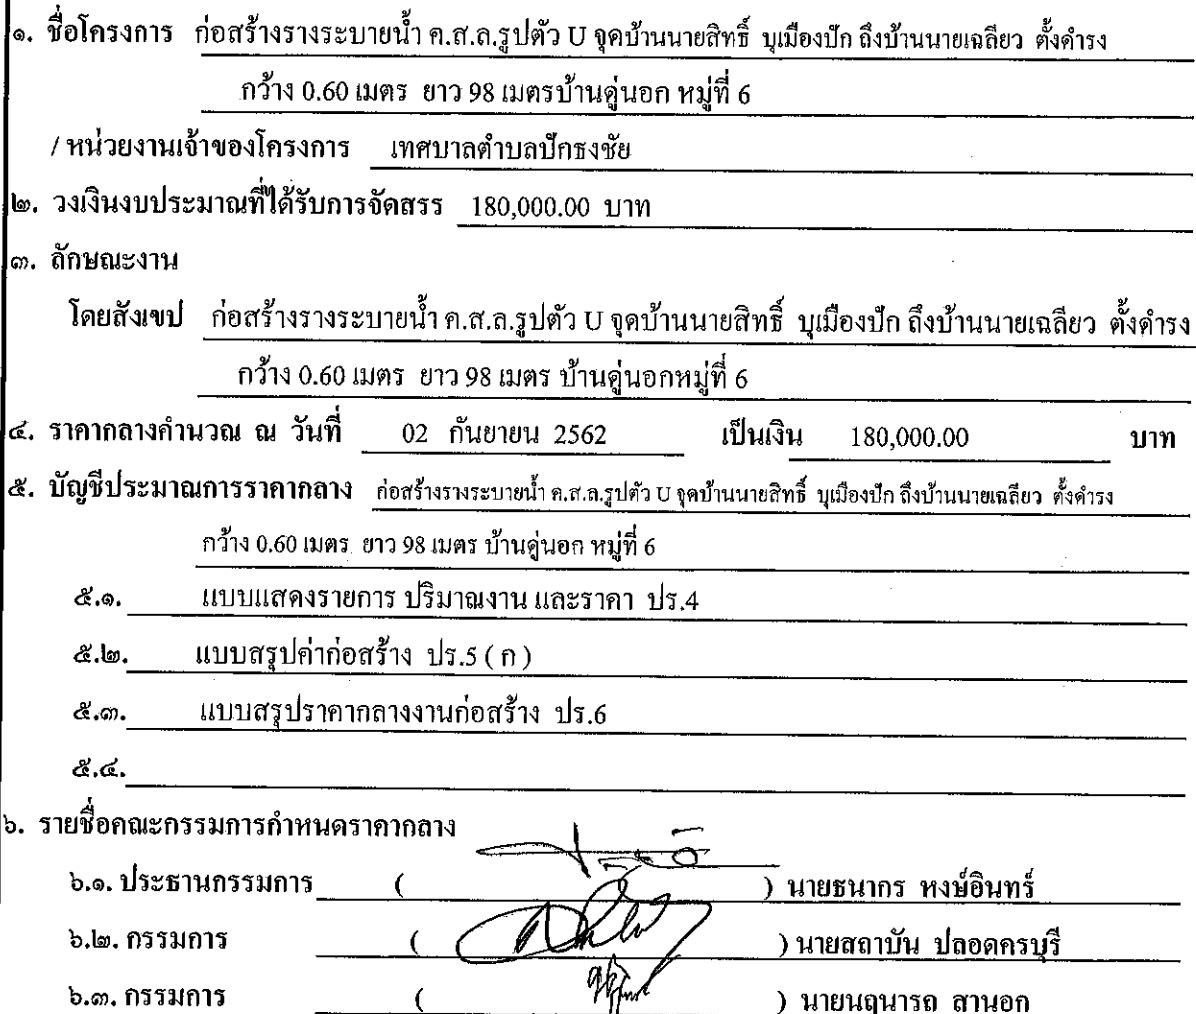 ๑. ชื่อโครงการ ก่อสร้างรางระบายน้ำ ค.ส.ล.รูปตัว U จุดบ้านนายสิทธิ์ บุเมืองปัก ถึงบ้านนายเฉลียว ตั้งดำรง
กว้าง 0.60 เมตร ยาว 98 เมตรบ้านดู่นอก หมู่ที่ 6
/ หน่วยงานเจ้าของโครงการ เทศบาลตำบลปักธงชัย
๒. วงเงินงบประมาณที่ได้รับการจัดสรร 180,000.00 บาท
๓. ลักษณะงาน
โดยสังเขป ก่อสร้างรางระบายน้ำ ค.ส.ล.รูปตัว U จุดบ้านนายสิทธิ์ บุเมืองปัก ถึงบ้านนายเฉลียว ตั้งดำรง
กว้าง 0.60 เมตร ยาว 98 เมตร บ้านดู่นอกหมู่ที่ 6
๔. ราคากลางคำนวณ ณ วันที่ 02 กันยายน 2562 เป็นเงิน 180,000.00 บาท
๕. บัญชีประมาณการราคากลาง ก่อสร้างรางระบายน้ำ ค.ส.ล.รูปตัว U จุดบ้านนายสิทธิ์ บุเมืองปัก ถึงบ้านนายเฉลียว ตั้งดำรง
กว้าง 0.60 เมตร ยาว 98 เมตร บ้านดู่นอก หมู่ที่ 6
๕.๑. แบบแสดงรายการ ปริมาณงาน และราคา ปร.4
๕.๒. แบบสรุปค่าก่อสร้าง ปร.5 ( ก )
๕.๓. แบบสรุปราคากลางงานก่อสร้าง ปร.6
๕.๔.
๖. รายชื่อคณะกรรมการกำหนดราคากลาง
๖.๑. ประธานกรรมการ ( ) นายธนากร หงษ์อินทร์
๖.๒. กรรมการ ( ) นายสถาบัน ปลอดครบุรี
๖.๓. กรรมการ ( ) นายนฤนารถ สานอก